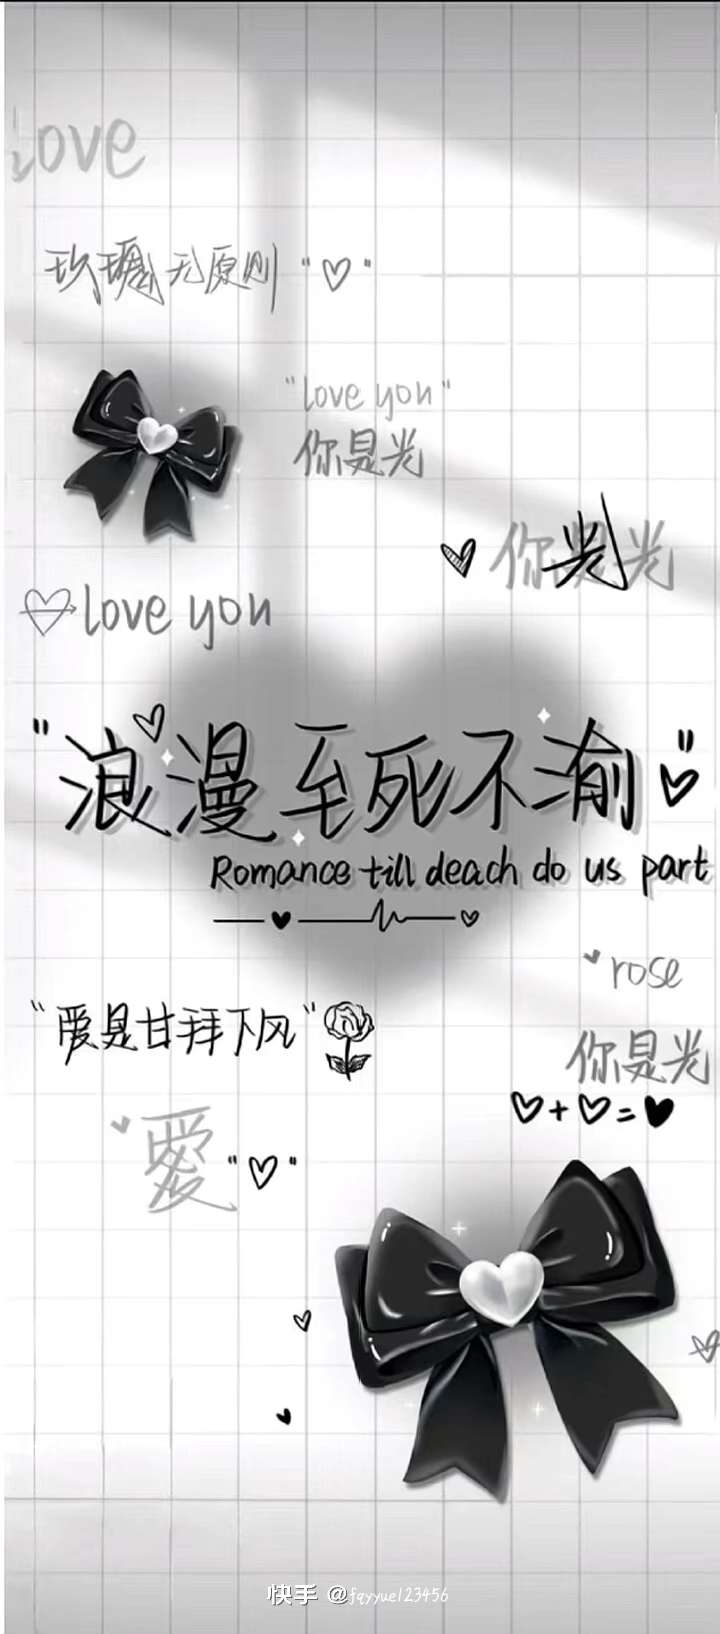 Love
玫瑰无原则 "♡"
"love you"
你是光
你是光
love you
"浪漫至死不渝"
Romance till deach do us part
rose
"爱是甘拜下风"
你是光
♡+♡=♥
愛 "♡"
快手 @fqyyue123456